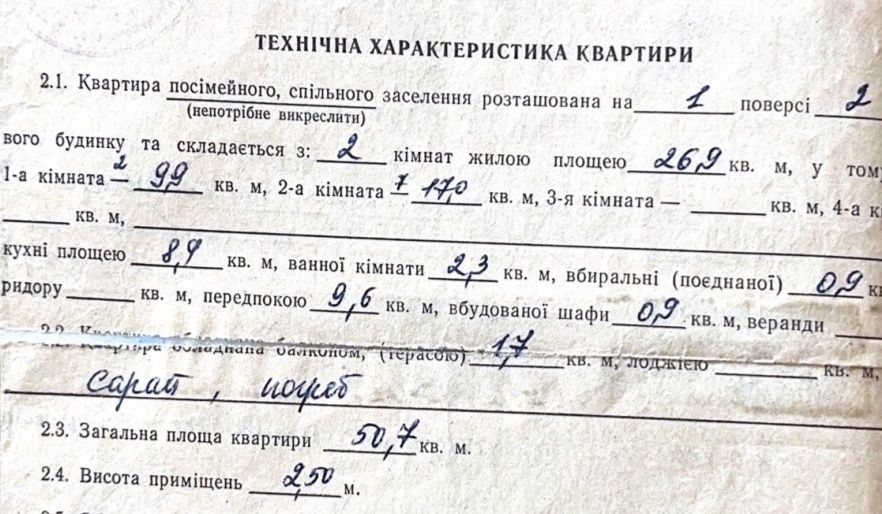 ТЕХНІЧНА ХАРАКТЕРИСТИКА КВАРТИРИ
2.1. Квартира посімейного, спільного заселення розташована на 1 поверсі 2
(непотрібне викреслити)
вого будинку та складається з: 2 кімнат жилою площею 26,9 кв. м, у тому
1-а кімната — 2 9,9 кв. м, 2-а кімната — 7 17,0 кв. м, 3-я кімната — кв. м, 4-а к
кв. м,
кухні площею 8,9 кв. м, ванної кімнати 2,3 кв. м, вбиральні (поєднаної) 0,9 к
ридору кв. м, передпокою 9,6 кв. м, вбудованої шафи 0,9 кв. м, веранди
2.2. Квартира обладнана балконом, (терасою) 1,7 кв. м, лоджією кв. м,
сарай, погреб
2.3. Загальна площа квартири 50,7 кв. м.
2.4. Висота приміщень 2,50 м.